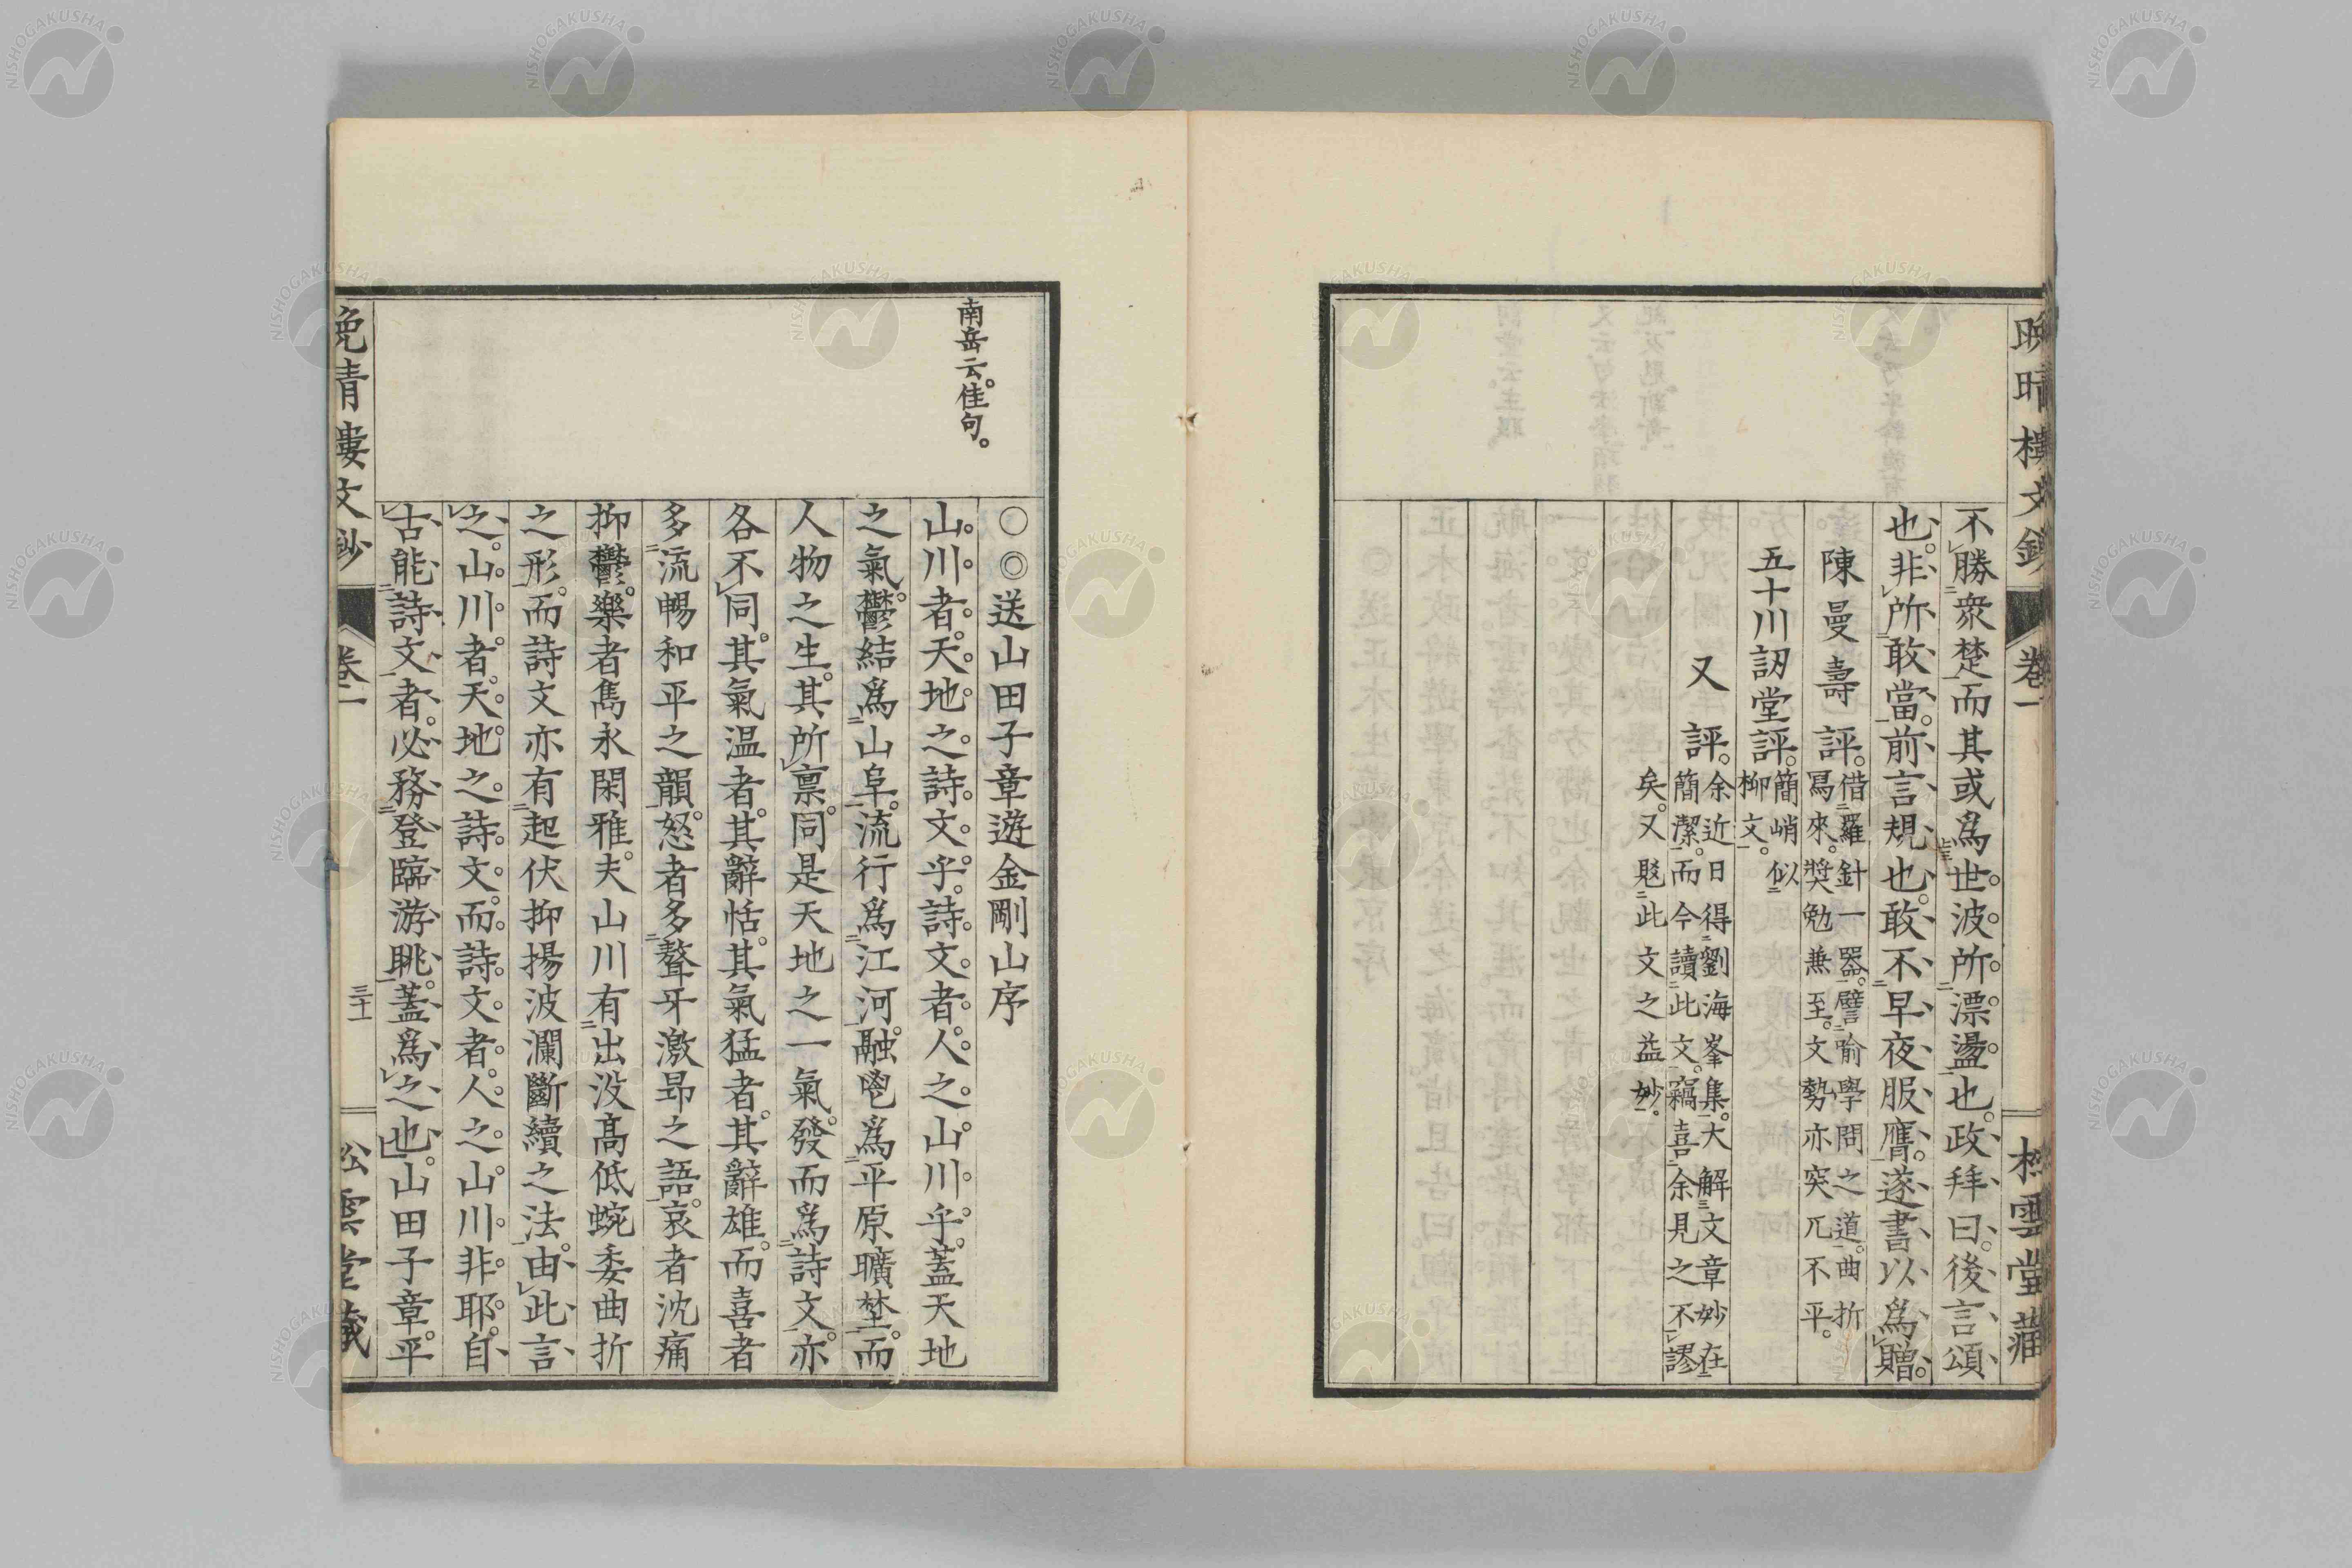 不勝衆楚而其或爲世波所漂盪也。政拜曰。後言頌
也。非所敢當。前言規也。敢不早夜服膺。遂書以爲贈。
陳曼壽評。借羅針一器。譬喻學問之道。曲折
寫來。奬勉兼至。文勢亦突兀不平。
五十川訒堂評。簡峭似
柳文。
又評。余近日得劉海峯集。大解文章妙在
簡潔。而今讀此文。竊喜余見之不謬
矣。又嘅此文之益妙。
晩晴樓文鈔 卷一
松雲堂藏
南岳云。佳句。
〇◎送山田子章遊金剛山序
山川者。天地之詩文乎。詩文者。人之山川乎。蓋天地
之氣。鬱結爲山阜。流行爲江河。融鬯爲平原曠埜。而
人物之生。其所禀同是天地之一氣。發而爲詩文。亦
各不同。其氣温者。其辭恬。其氣猛者。其辭雄。而喜者
多流暢和平之韻。怒者多聱牙激昂之語。哀者沈痛
抑鬱。樂者雋永閑雅。夫山川有出没髙低蜿委曲折
之形。而詩文亦有起伏抑揚波瀾斷續之法。由此言
之。山川者。天地之詩文。而詩文者。人之山川非耶。自
古能詩文者。必務登臨游眺。蓋爲之也。山田子章。平
晩晴樓文鈔 卷一 三十一
松雲堂藏
NISHOGAKUSHA